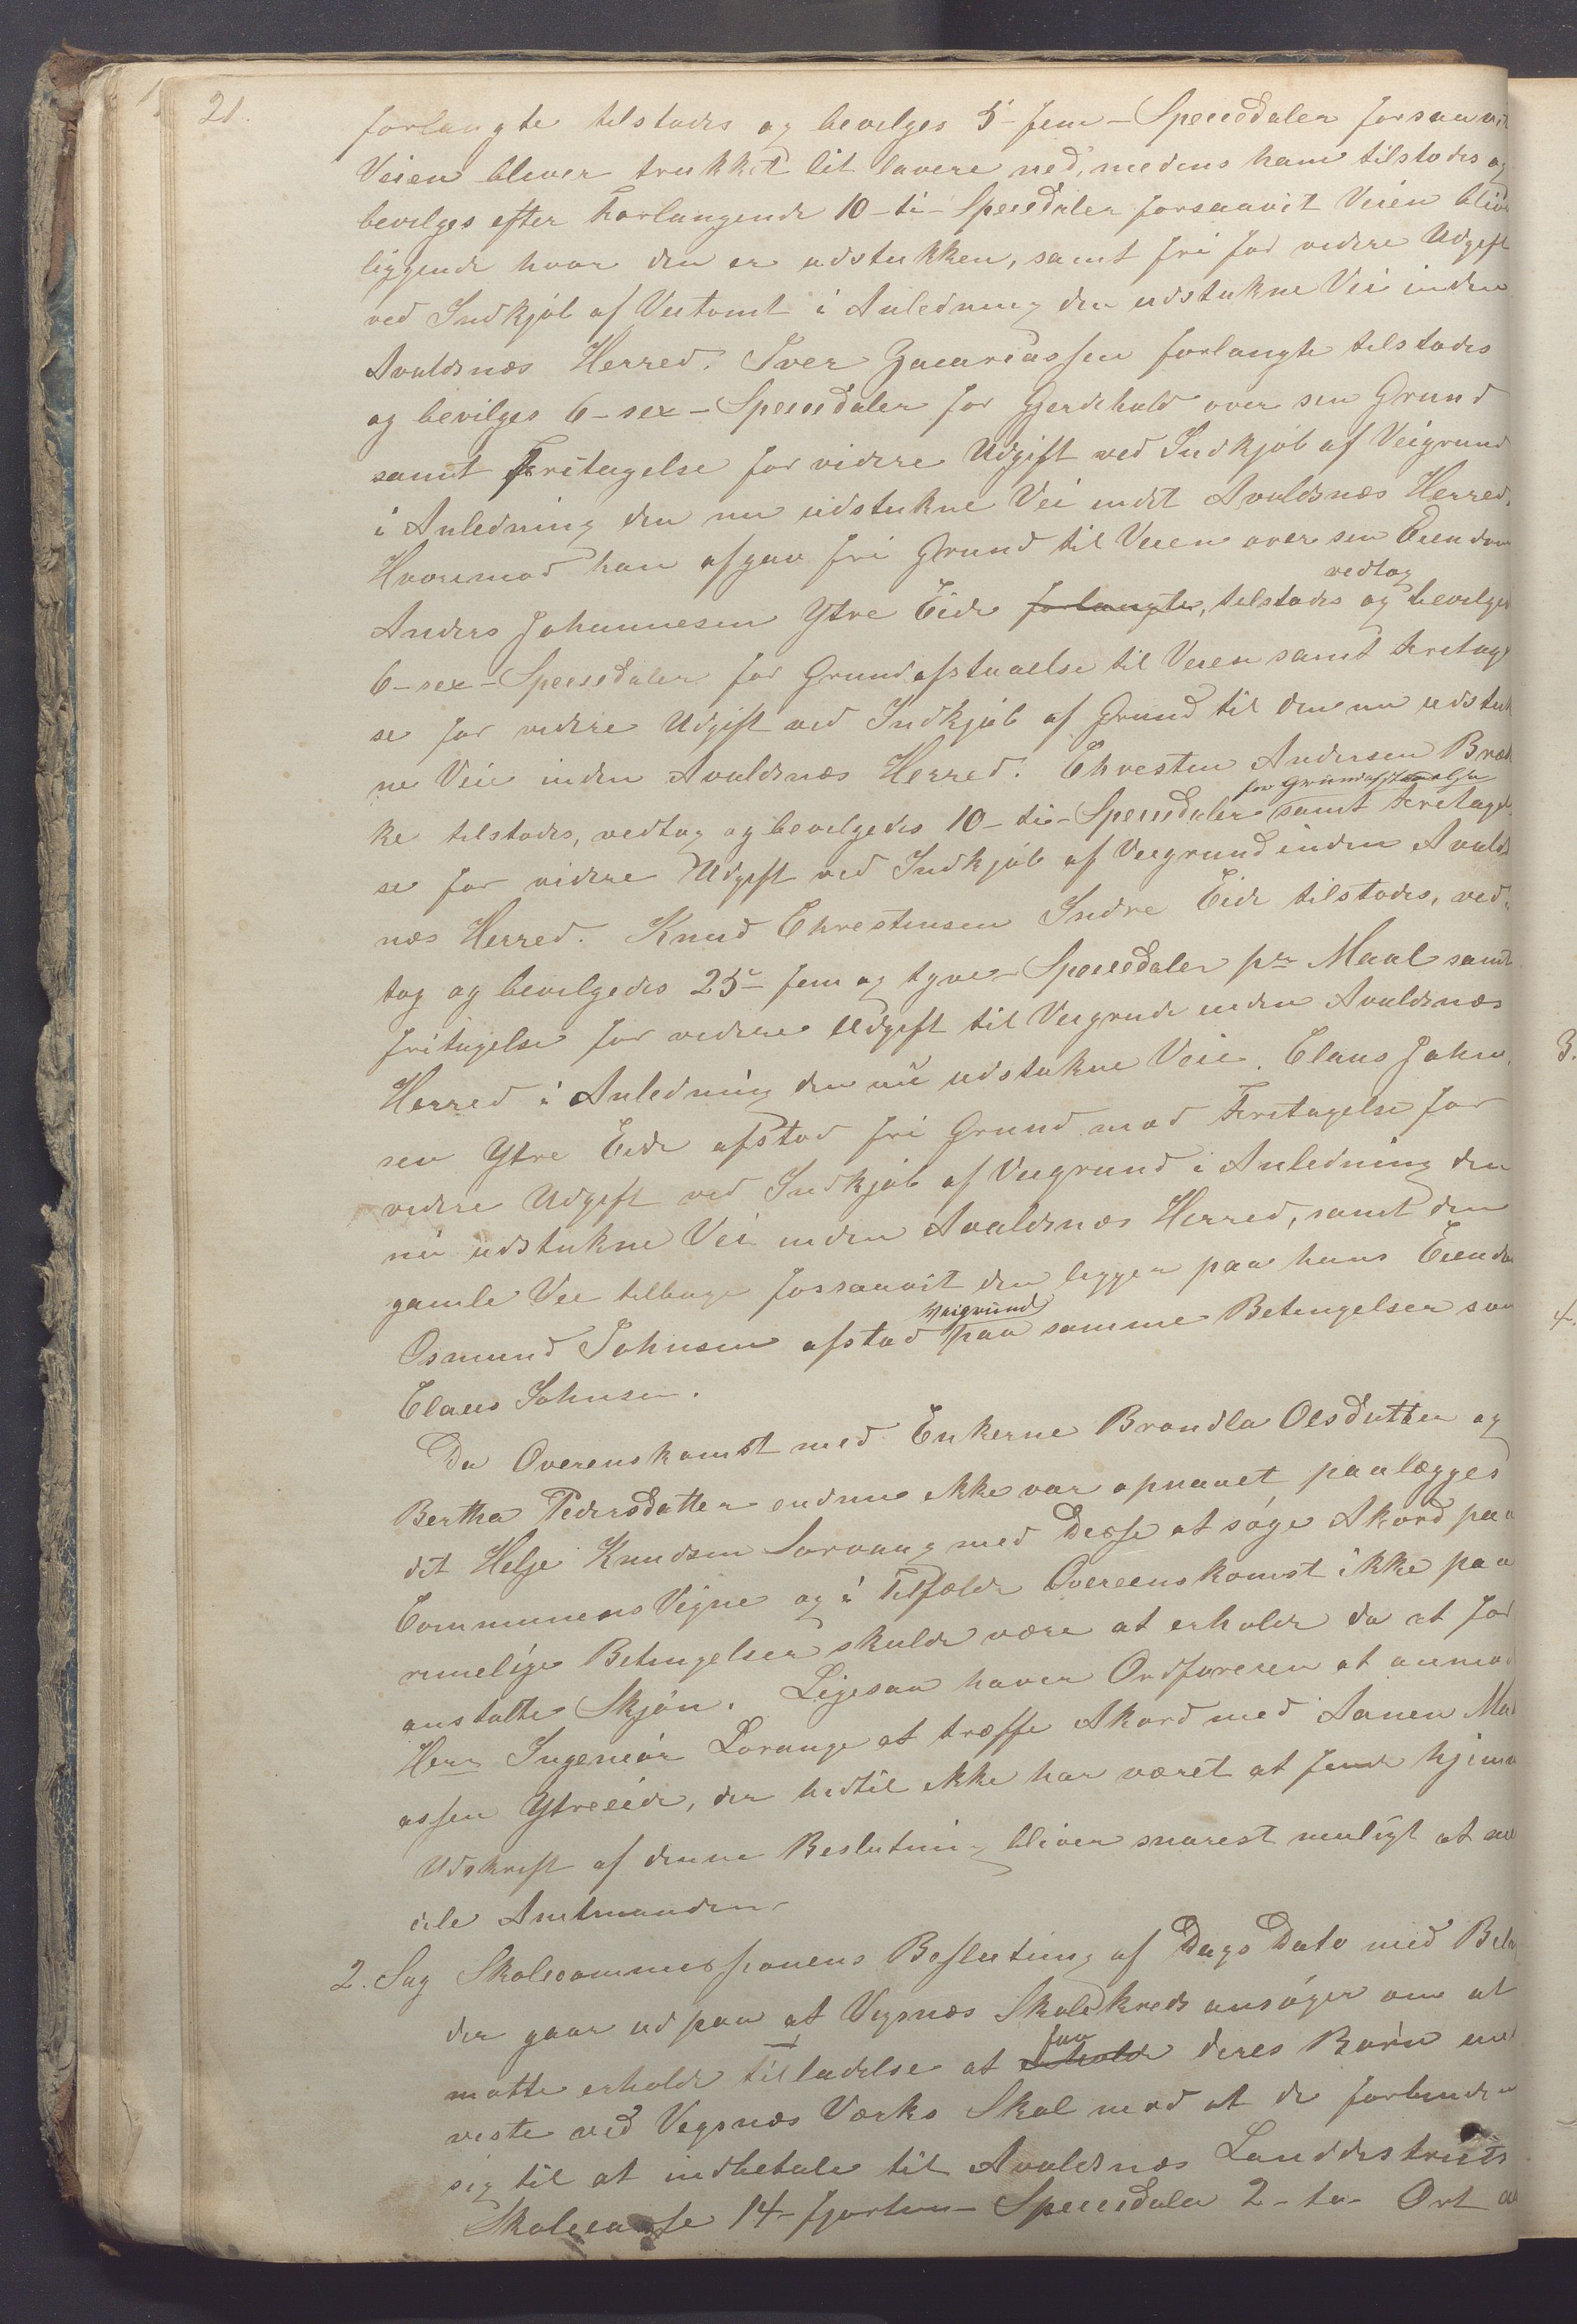 21.
forlangte tilstodes og bevilges 5-fem-Speciedaler forsaavit
Veien bliver trukket lit lavere ned, medens ham tilstodes og
bevilges efter Forlangende 10-ti-Speciedaler forsaavit Veien bliver
liggende hvor den er udstukken, samt fri for videre Udgift
ved Indkjøb af Veitomt i Anledning den udstukne Vei inden
Avaldsnæs Herred. Iver Zacariassen forlangte tilstodes
og bevilges 6-sex-Speciedaler for Gjerdehald over sin Grund
samt Fritagelse for videre Udgift ved Indkjøb af Veigrund
i Anledning den nu udstukne Vei indet Avaldsnæs Herred,
Hvorimod han afgav fri Grund til Veien over sin Eiendom
Anders Johannesen Ytre Eide forlangte, tilstodes vedtog og bevilged
6-sex-Speciedaler for Grundafstaaelse til Veien samt Fritagel
se for videre Udgift ved Indkjøb af Grund til den nu udstuk
ne Veie inden Avaldsnæs Herred. Christen Andersen Bræk
ke tilstodes, vedtog og bevilgedes 10-ti-Speciedaler for Grundafstaaelse samt Fritagel
se for videre Udgift ved Indkjøb af Veigrund inden Avalds
næs Herred. Knud Christensen Indre Eide tilstodes, ved-
tog og bevilgedes 25-fem og tyve-Speciedaler pr Maal samt
fritagelse for videre Udgift til Veigrunde inden Avaldsnæs
Herred i Anledning den nu udstukne Veie. Claus John-
sen Ytre Eide afstod fri Grund mod Fritagelse for
videre Udgift ved Indkjøb af Veigrund i Anledning den
nu udstukne Vei inden Avaldsnæs Herred, samt den
gamle Vei tilbage forsaavit den ligger paa hans Eiendom
Osmund Johnsen afstod Veigrund paa samme Betingelser som
Claus Johnsen.
Da Overenskomst med Enkerne Brondla Olsdatter og
Bertha Pedersdatter endnu ikke var opnaaet paalægges
det Helje Knudsen Sorvaag med Disse at søge Akord paa
Communens Vegne og i Tilfælde Overeenskomst ikke paa
rimelige Betingelser skulde være at erholde da at for
anstalte Skjøn. Ligesaa haver Ordføreren at anmode
Herr Ingeniør Lorange at træffe Akord med Aanen Mat
assen Ytreeide, der hidtil ikke har været at finde hjemme
Udskrift af denne Beslutning bliver snarest muligt at med
dele Amtmanden.
2. Sag Skolecommissionens Beslutning af Dags Dato med Bilag
der gaar ud paa at Vigsnæs Skolekreds ansøger om at
motte erholde tilladelse at erholde faa deres Børn und
viste ved Vigsnæs Værks Skole mod at de forbinder
sig til at indbetale til Avaldsnæs Landdistricts
Skolecasse 14-fjorten-Speciedaler 2-to- Ort
3.
4.